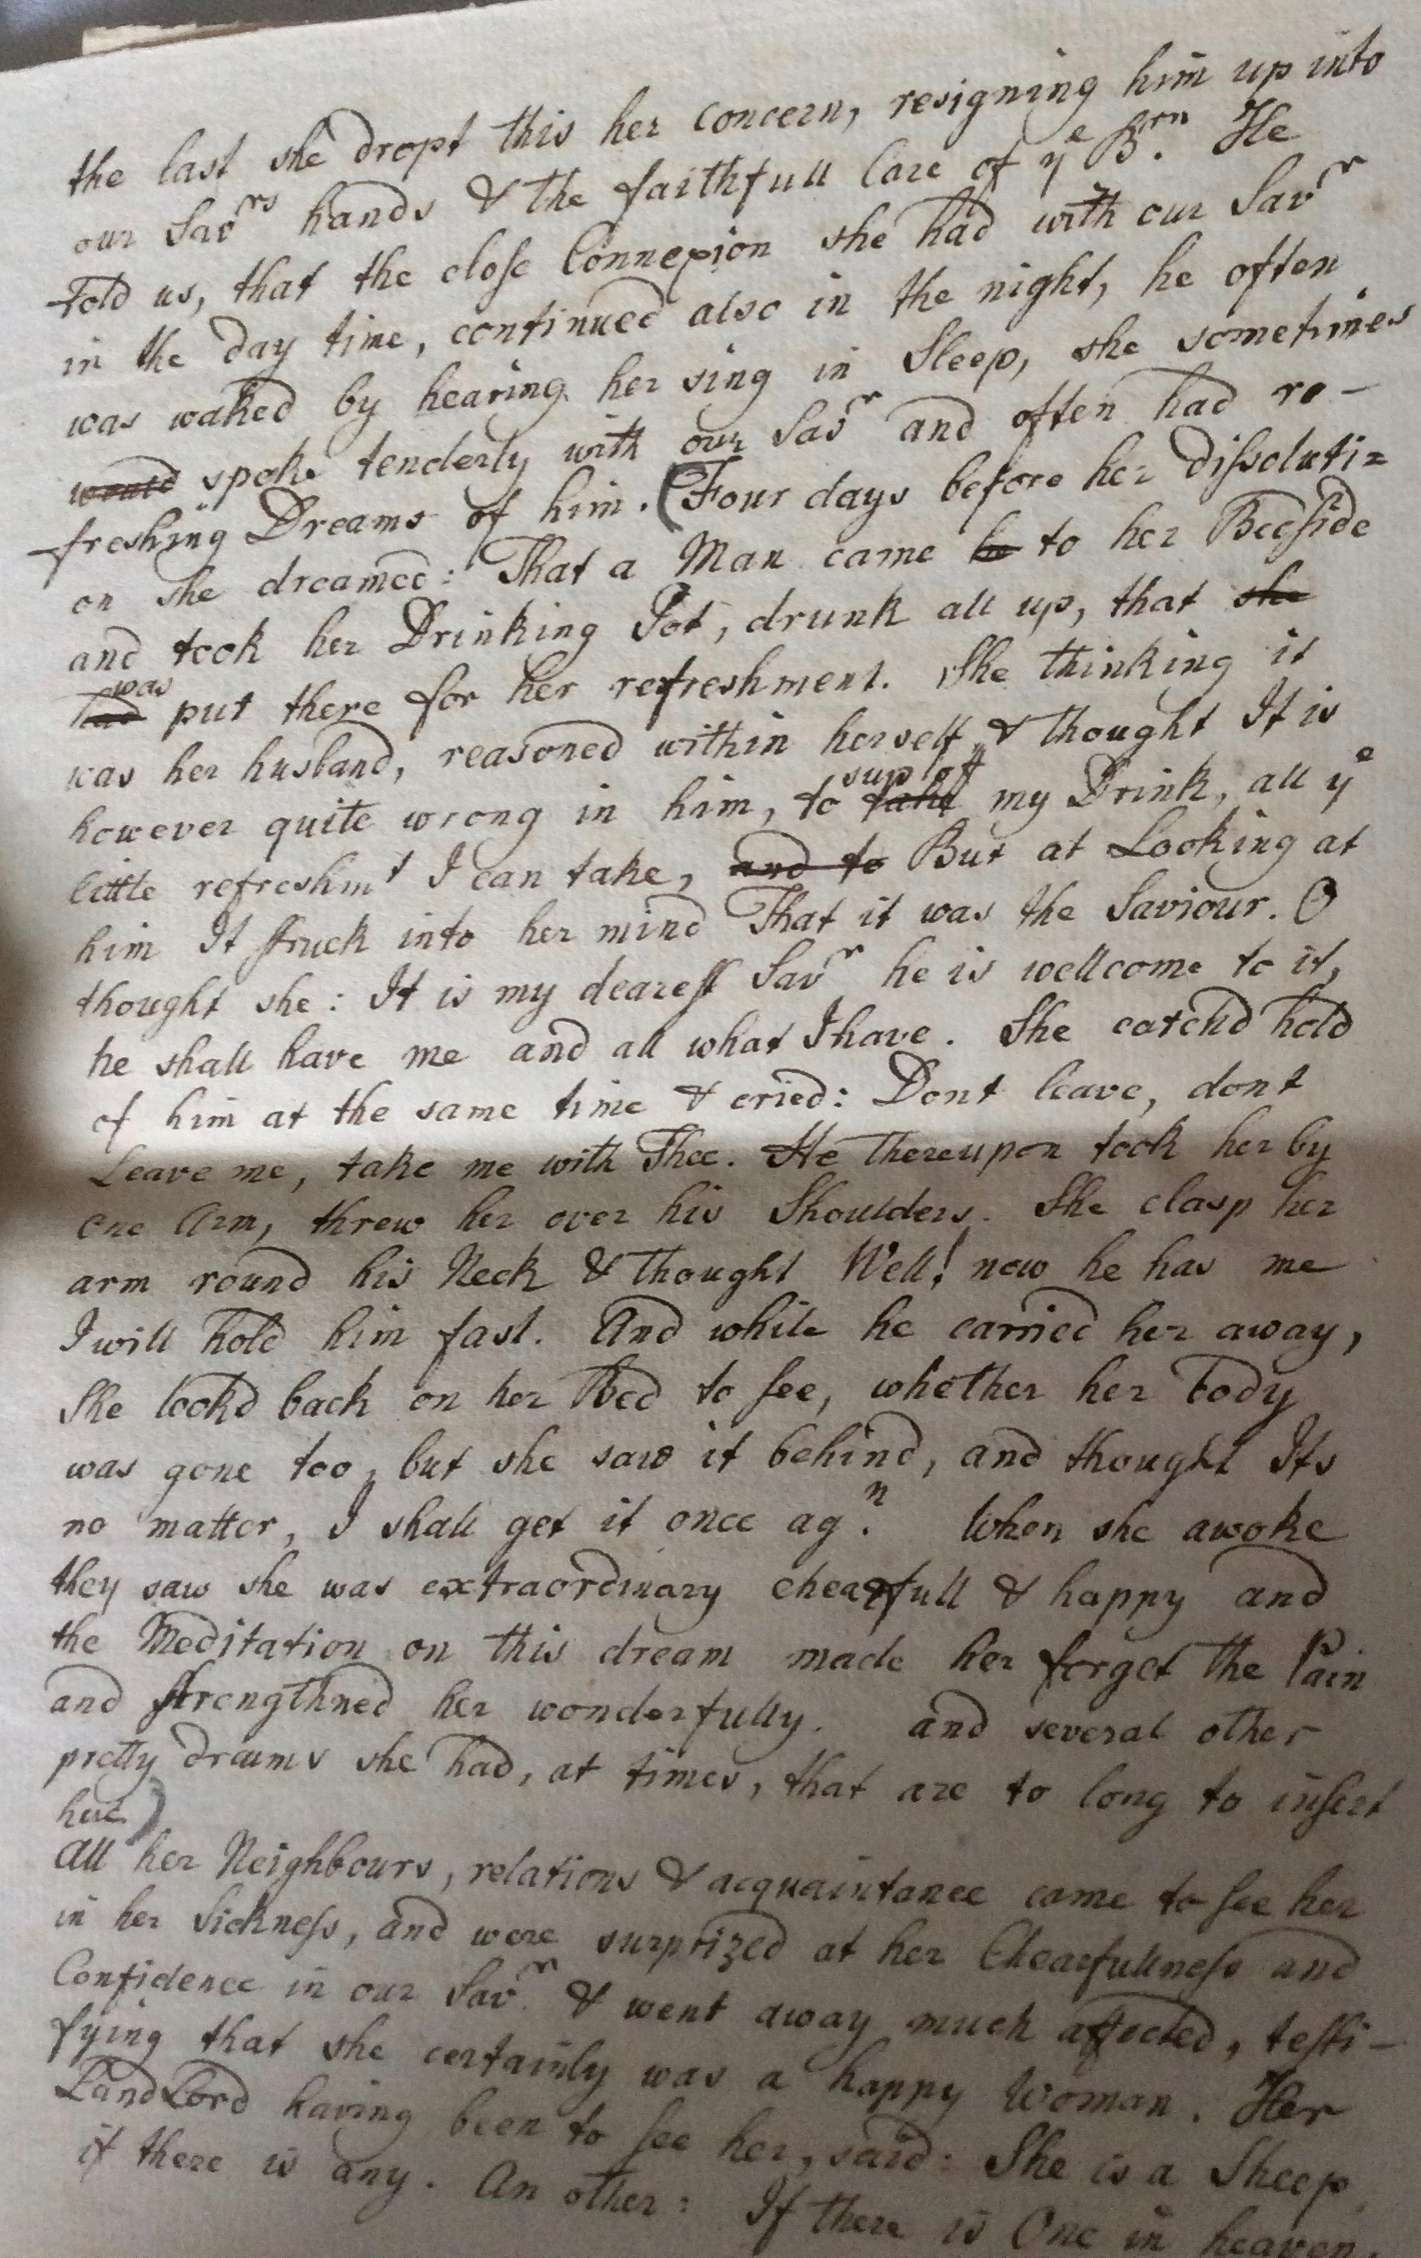 the last she dropt this her concern, resigning him up into
our Savrs hands & the faithfull Care of ye Brn. He
told us, that the close Connexion she had with our Savr
in the day time, continued also in the night, he often
was waked by hearing her sing in Sleep, she sometimes
would spoke tenderly with our Savr and often had re-
freshing Dreams of him. (Four days before her dissoluti=
on she dreamed: That a Man came to her Bedside
and took her Drinking Pot, drunk all up, that she
had was put there for her refreshment. She thinking it
was her husband, reasoned within herself, & thought It is
however quite wrong in him, to take sup off my Drink, all ye
little refreshmt I can take, and to But at Looking at
him It struck into her mind That it was the Saviour. O
thought she: It is my dearest Savr he is wellcome to it,
he shall have me and all what I have. She catch'd hold
of him at the same time & cried: Dont leave, dont
Leave me, take me with Thee. He thereupon took her by
one Arm, threw her over his Shoulders. She clasp her
arm round his Neck & thought Well! now he has me
I will hold him fast. And while he carried her away,
She look'd back on her Bed to see, whether her body
was gone too, but she saw it behind, and thought Its
no matter, I shall get it once agn. When she awoke
they saw she was extraordinary chearfull & happy and
the Meditation on this dream made her forget the Pain
and strengthned her wonderfully. and several other
pretty dreams she had, at times, that are to long to insert
here)
All her Neighbours, relations & acquaintance came to see her
in her Sickness, and were surprized at her Chearfullness and
Confidence in our Savr. & went away much affected, testi-
fying that she certainly was a happy Woman. Her
LandLord having been to see her, said: She is a Sheep
if there is any. An other: If there is One in heaven,